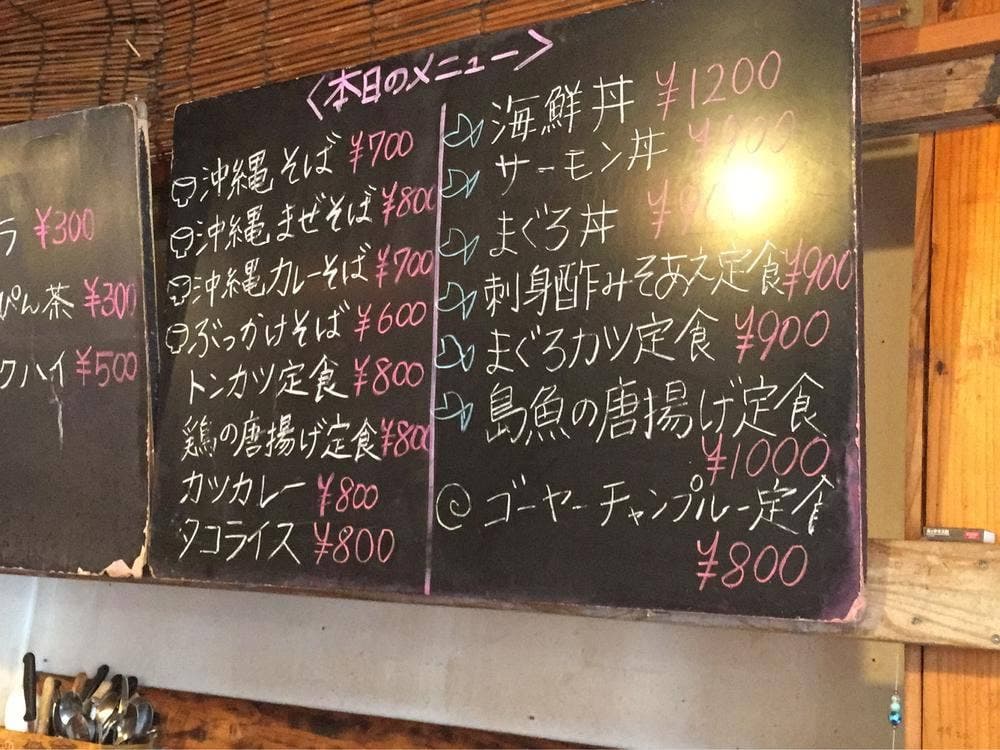 ラ ¥300
ぴん茶 ¥300
クハイ ¥500
〈本日のメニュー〉
沖縄そば ¥700
沖縄まぜそば ¥800
沖縄カレーそば ¥700
ぶっかけそば ¥600
トンカツ定食 ¥800
鶏の唐揚げ定食 ¥800
カツカレー ¥800
タコライス ¥800
海鮮丼 ¥1200
サーモン丼 ¥900
まぐろ丼
刺身酢みそあえ定食 ¥900
まぐろカツ定食 ¥900
島魚の唐揚げ定食
¥1000
@ ゴーヤーチャンプルー定食
¥800